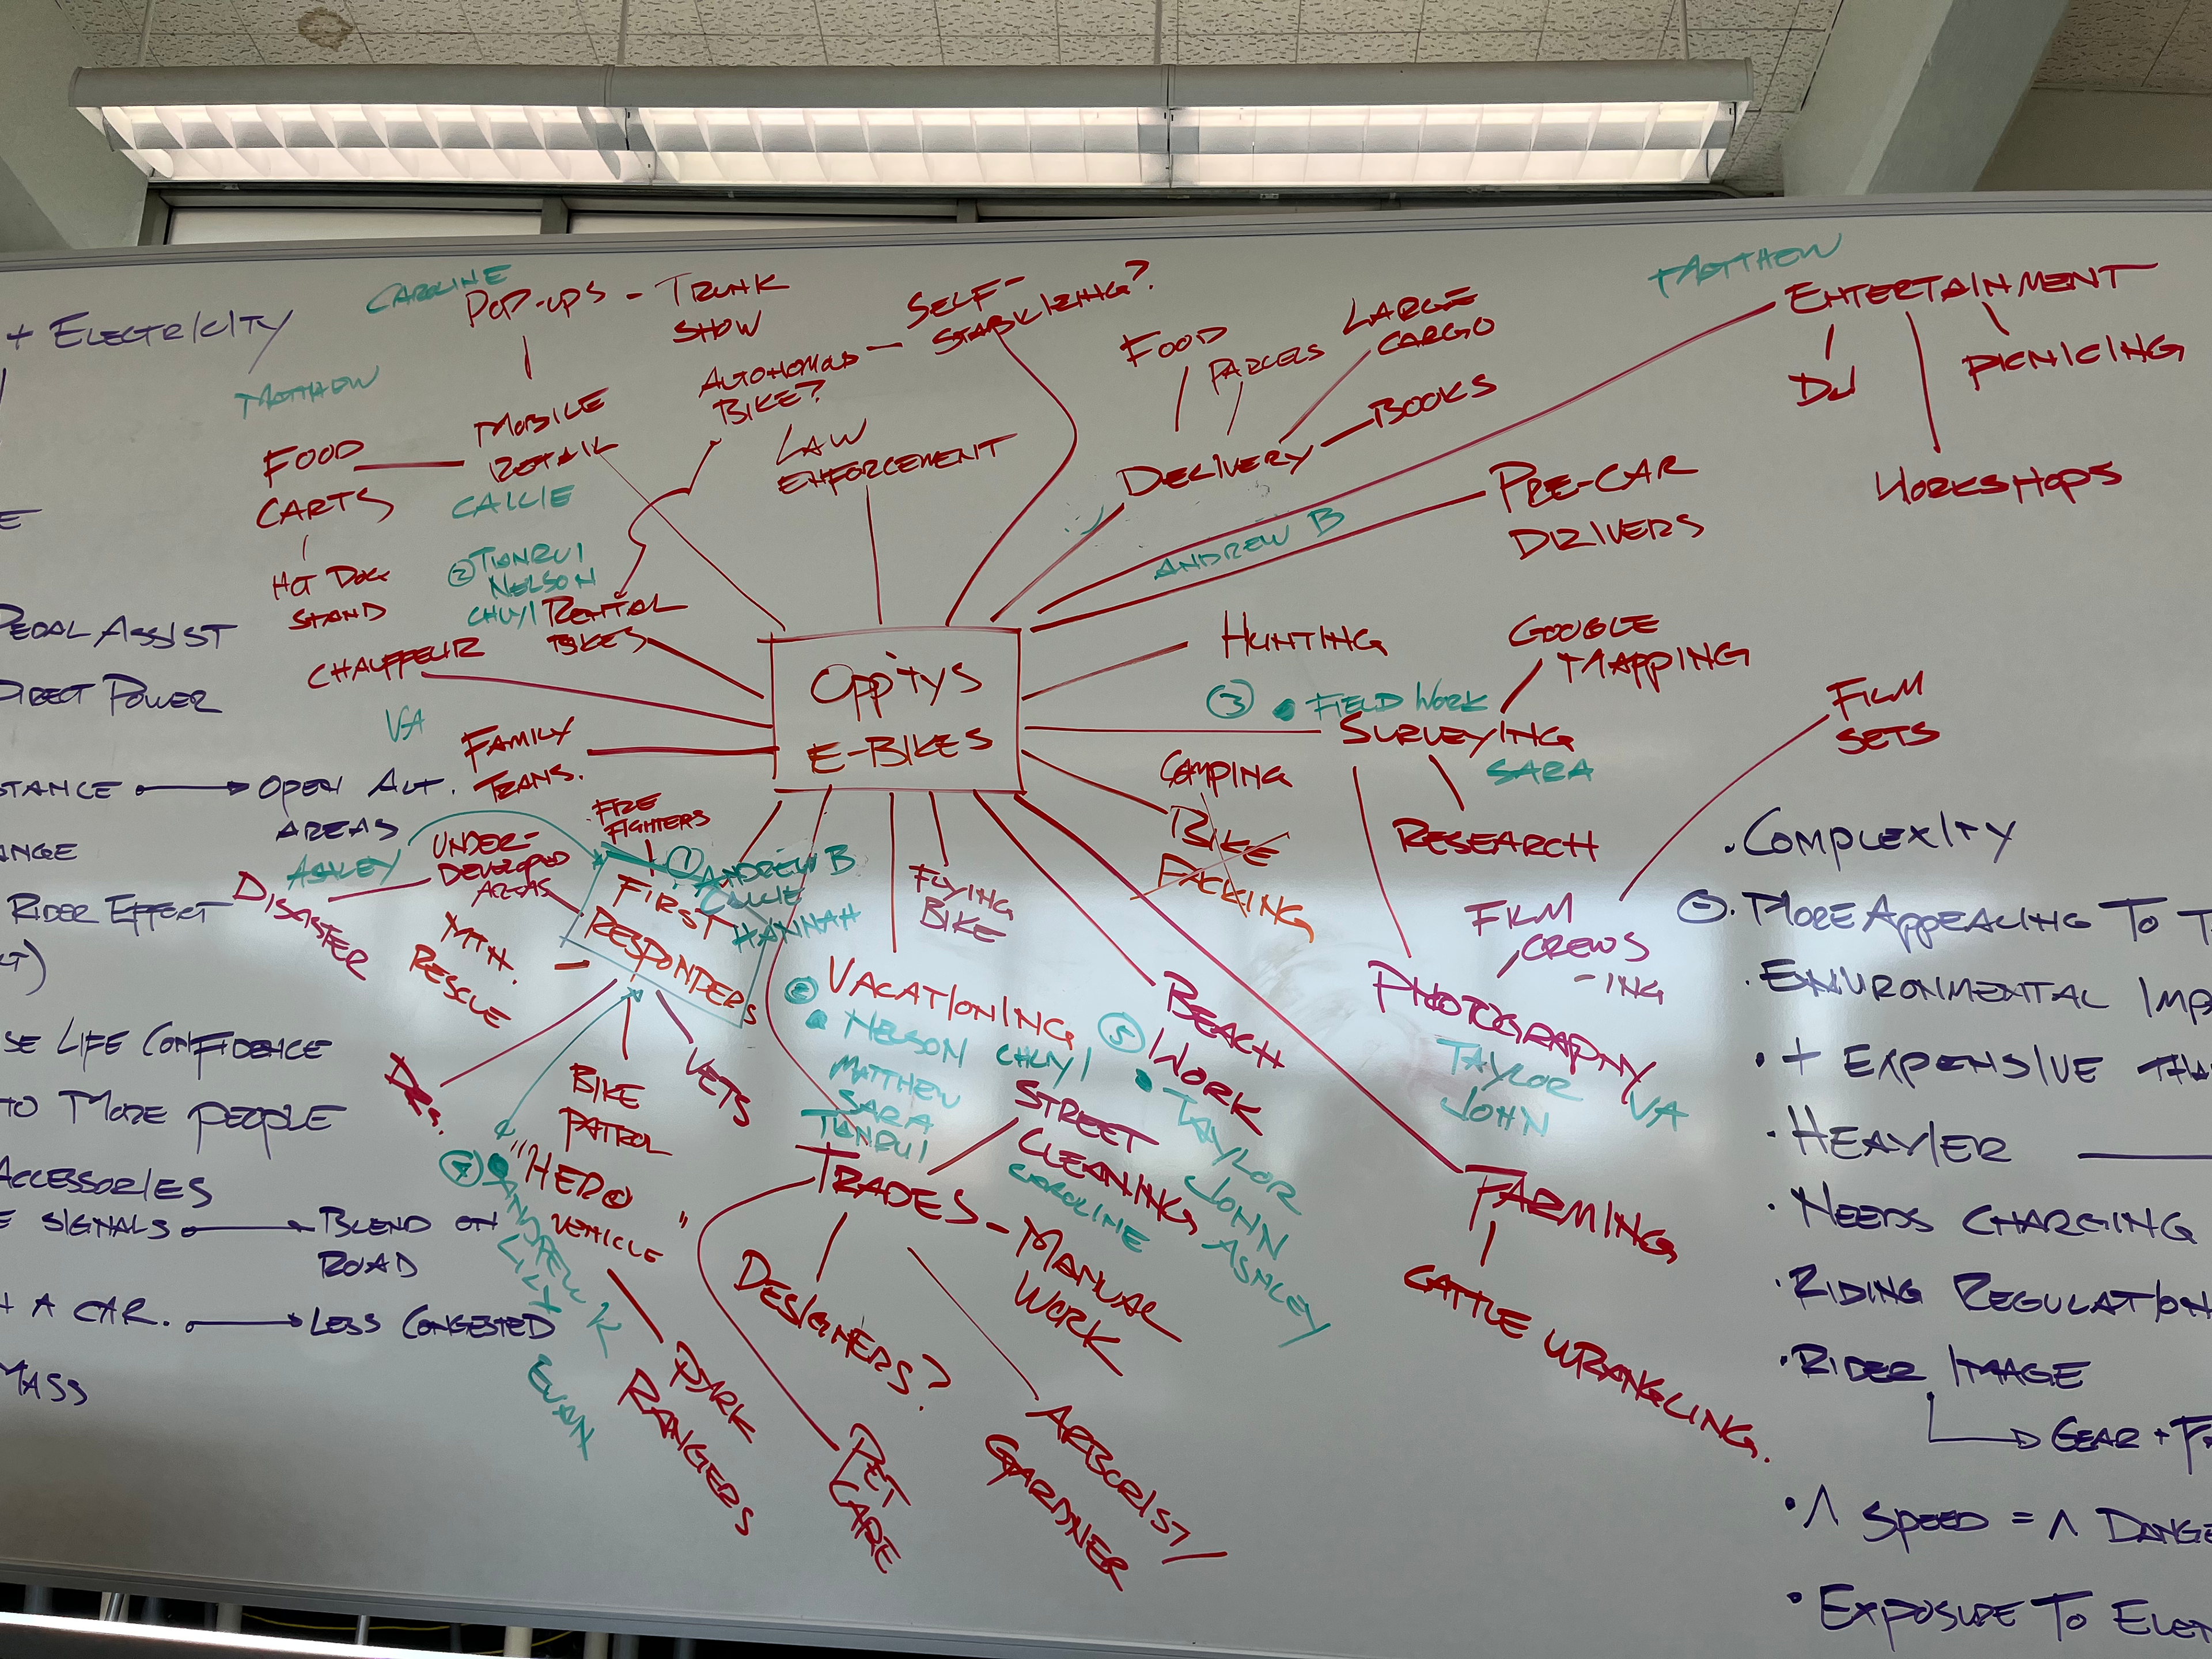 + ELECTRICITY
PEDAL ASSIST
DIRECT POWER
STANCE → OPEN ALT.
AREAS
ANGE
RIDER EFFECT
SE LIFE CONFIDENCE
TO MORE PEOPLE
ACCESSORIES
E SIGNALS → BLEND ON
ROAD
A CAR. → LESS CONGESTED
MASS
CAROLINE
POP-UPS - TRUNK
SHOW
MATTHEW
FOOD
CARTS
HOT DOG
STAND
MOBILE
RETAIL
CALLIE
② TIANRUI
NELSON
CHUYI
RENTAL
BIKES
AUTONOMOUS
BIKE?
SELF-
STABILIZING?
LAW
ENFORCEMENT
FOOD
PARCELS
LARGE
CARGO
BOOKS
DELIVERY
MATTHEW
ENTERTAINMENT
DJ
PICNICING
WORKSHOPS
ANDREW B
PRE-CAR
DRIVERS
CHAUFFEUR
VA
FAMILY
TRANS.
OPP'TYS
E-BIKES
HUNTING
GOOGLE
MAPPING
③ • FIELD WORK
SURVEYING
SARA
RESEARCH
FILM
SETS
FILM
CREWS
-ING
PHOTOGRAPHY
TAYLOR
JOHN
VA
CAMPING
BIKE
PACKING
FIRE
FIGHTERS
ASHLEY
UNDER-
DEVELOPED
AREAS
DISASTER
① ANDREW B
CALLIE
HANNAH
FIRST
RESPONDERS
MTN.
RESCUE
DRS.
BIKE
PATROL
VETS
④ • "HERO
VEHICLE"
ANDREW K
LILY
EVAN
PARK
RANGERS
FLYING
BIKE
VACATIONING
• NELSON CHUYI
MATTHEW
SARA
TIANRUI
BEACH
WORK
⑤
• TAYLOR
JOHN
ASHLEY
STREET
CLEANING
CAROLINE
TRADES - MANUAL
WORK
DESIGNERS?
PET
CARE
ARBORIST/
GARDNER
FARMING
CATTLE WRANGLING.
• COMPLEXITY
MORE APPEALING TO T
• ENVIRONMENTAL IMP
• + EXPENSIVE THA
• HEAVIER
• NEEDS CHARGING
• RIDING REGULATION
• RIDER IMAGE
→ GEAR + F
• ^ SPEED = ^ DANGE
• EXPOSURE TO ELE